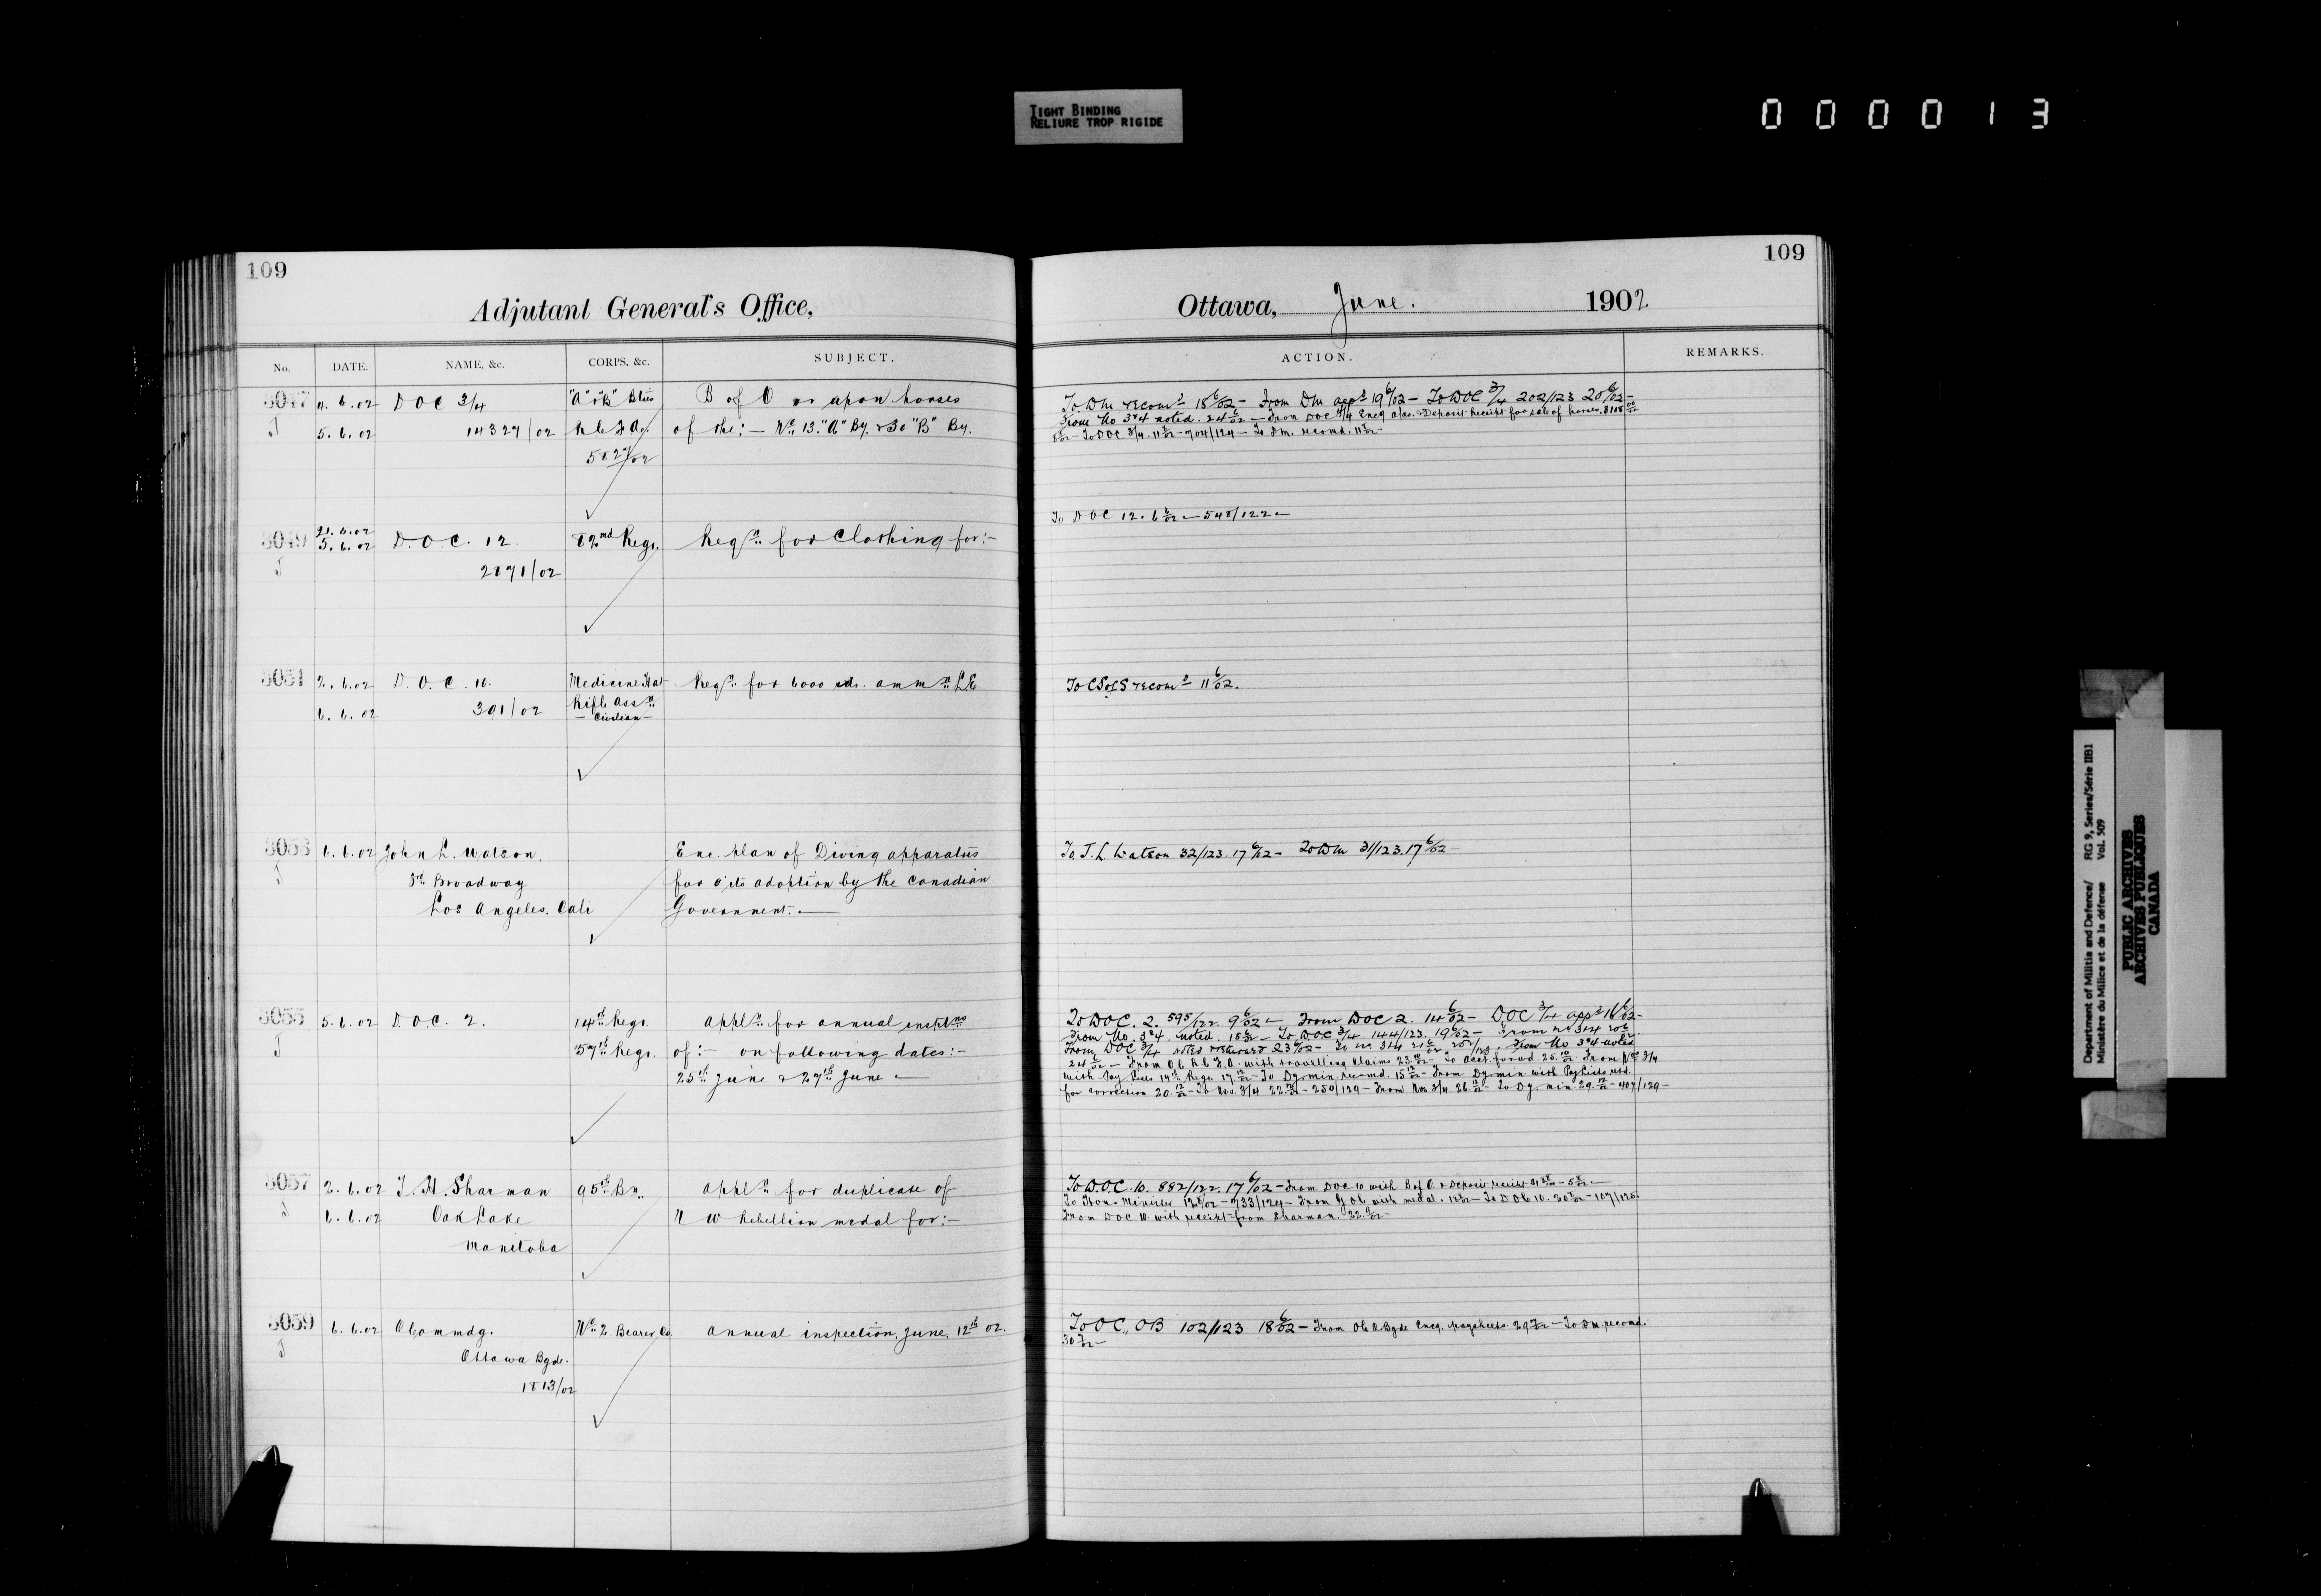 TIGHT BINDING
RELIURE TROP RIGIDE
000013
109
Adjutant General's Office,
No. DATE. NAME, &c. CORPS, &c. SUBJECT.
5047 4.6.02 D O C 3/4 "A" & "B" Btys B of O on upon horses
J 5.6.02 14327/02 R C F A. of the:— No. 13. "A" By. & 30 "B" By.
5049 21.5.02
5.6.02 D.O.C. 12. 82nd Regt. Reqn. for Clothing for:—
J 2871/02
5051 2.6.02 D.O.C. 10. Medicine Hat Reqn. for 6000 rds. ammn. L.E.
6.6.02 301/02 Rifle Assn.
— Civilian —
5053 6.6.02 John L. Watson, Enc. plan of Diving apparatus
J Broadway for its adoption by the Canadian
Los Angeles. Cali Government.—
5055 5.6.02 D.O.C. 2. 14th Regt. appln. for annual insptns
J 57th Regt. of:— on following dates:—
25th June & 27th June —
5057 2.6.02 T. H. Sharman 95th Bn. appln. for duplicate of
J 6.6.02 Oak Lake N W Rebellion medal for:—
Manitoba
5059 6.6.02 O Commdg. No. 2. Bearer Co. annual inspection, June, 12th 02.
J Ottawa Bgde.
1813/02
109
Ottawa, June. 1902
ACTION. REMARKS.
To DM recomd 18 6/02 — From DM appd 19 6/02 — To DOC 3/4 202/123 20 6/02 —
From No 3&4 noted. 24 6/02 — From DOC 3/4 Deposit Receipt for sale of horses.
To DOC 3/4. 704/124 — To DM. recomd.
To DOC 12. 6 6/02 — 548/122 —
To CS of S recomd 11 6/02.
To J. L Watson 32/123. 17 6/02 — To DM 31/123. 17 6/02 —
To DOC. 2. 595/122. 9 6/02 — From DOC 2. 14 6/02 — DOC 3/4 appd 16 6/02 —
From No. 3&4. noted. 18 6/02 — To DOC 3/4 144/123. 19 6/02 — From No 3&4
From DOC 3/4 noted & returned 23 6/02 — From No 3&4 noted
24 6/02 — From O C R C F. A. with travelling Claims 23 10/02 — To Acct. forwd. 25 10/02 — From Nos 3/4
with Pay Lists 14th Regt. 17 12/02 — To Dy min, recomd. 15 12/02 — From Dy min with Paylists
for correction 20. 12/02 — To Nos. 3/4 22. 12/02 — 250/129 — From Nos 3/4 26. 12/02 — To Dy min 29. 12/02 — 407/129 —
To D.OC. 10. 882/122. 17 6/02 — From DOC 10 with B of O. & Deposit receipt
To Hon. Minister 12 8/02 — 733/124 — with medal. — To DOC 10. — 107/125.
From DOC 10 with receipt from Sharman. 22.
To OC,, OB 102/123 18 6/02 — From OC O.Bgde Encg. paysheets. 29 7/02 — To DM, recomd.
30 7/02 —
Department of Militia and Defence/ RG 9, Series/Série IIB1
Ministère du Milice et de la défense Vol. 509
PUBLIC ARCHIVES
ARCHIVES PUBLIQUES
CANADA